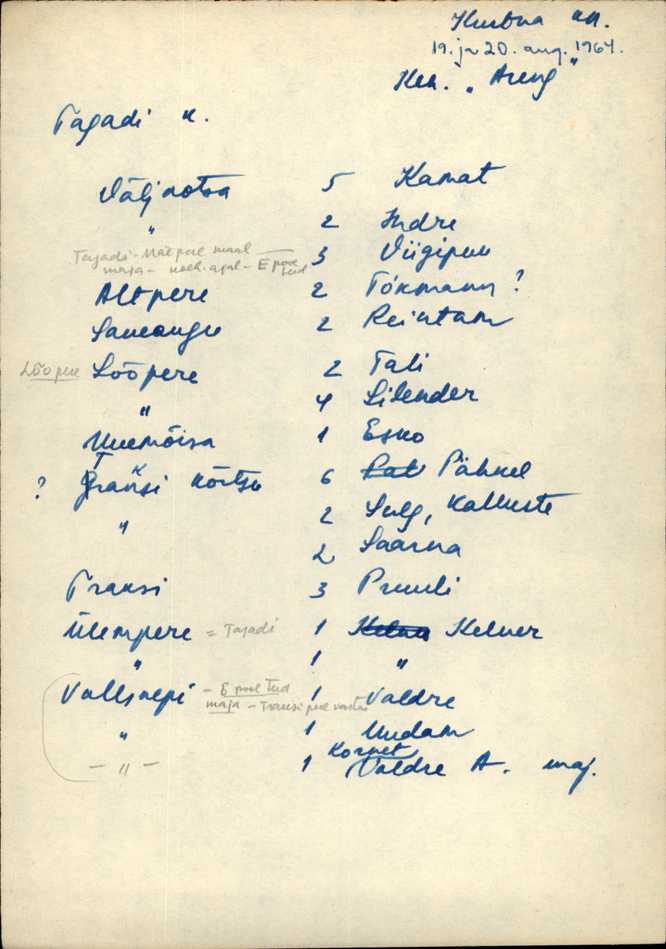 Kurtna kn.
19. ja 20. aug. 1964.
Keh. „Areng"
Tagadi k.
Väljaotsa 5 Kamat
" 2 Indre
Tagadi - Mäe pool maal maja - E pool 3 Viigipuu
Altpere 2 Tokmann ?
Saueaugu 2 Reintam
Lõõpere Sõõpere 2 Tali
" 4 Silender
Uuemõisa 1 Esko
? Transi kõrtsu 6 Pähkel
" 2 Sulg, Kalluste
2 Saarna
Transi 3 Pruuli
Ülempere = Tagadi 1 Kelner
" 1 "
Vallsaepi - E pool tud 1 Valdre
maja - Transi pool vastu
" 1 Undam
Kornet
- " - 1 Valdre A. maj.